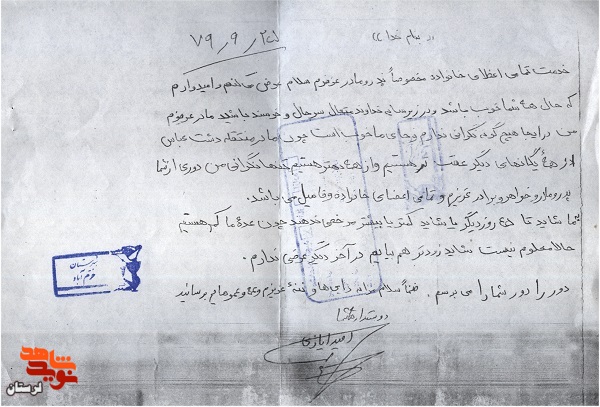 « بنام خدا »
۷۹/۹/۲۵
خدمت تمامی اعضای خانواده مخصوصاً پدر و مادر عزیزم سلام عرض میکنم و امیدوارم
که حال همه شما خوب باشد و در زیر سایه خداوند متعال سرحال و خرسند باشید مادر عزیزم
من در اینجا هیچ گونه نگرانی ندارم و جای ما خوب است چون ما در منطقه دشت عباس
از همه یگانهای دیگر عقب تر هستیم و از همه بهتر هستیم تنها نگرانی من دوری از شما
پدر و مادر و خواهر و برادر عزیزم و تمامی اعضای خانواده و فامیل می باشد.
شما شاید تا روز دیگر یا شاید کمتر یا بیشتر مرخصی ندهند چون عده ما کم هستیم
حالا معلوم نیست شاید زودتر هم بیایم در آخر دیگر عرضی ندارم.
دور را دور شما را می بوسم. ضمناً سلام مرا به دایی ها و عزیزم و عمه و عموهایم برسانید
دوستدار شما
امید ایازی
خرم آباد
نوید شاهد
لرستان